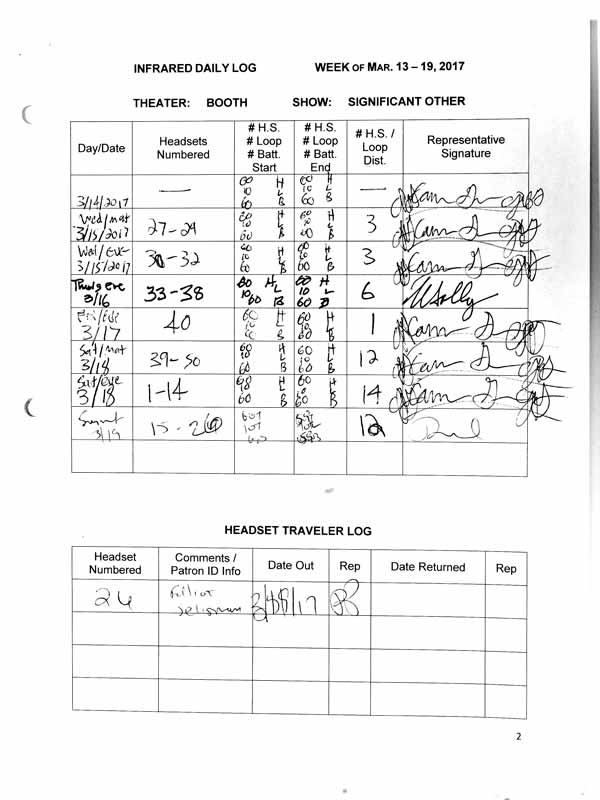 INFRARED DAILY LOG WEEK OF MAR. 13 – 19, 2017
THEATER: BOOTH SHOW: SIGNIFICANT OTHER
Day/Date Headsets Numbered # H.S. # Loop # Batt. Start # H.S. # Loop # Batt. End # H.S. / Loop Dist. Representative Signature
3/14/2017 — 60 H 10 L 60 B 60 H 10 L 60 B —
Wed/mat 3/15/2017 27-29 60 H 10 L 60 B 60 H 10 L 60 B 3
Wed/Eve 3/15/2017 30-32 60 H 10 L 60 B 60 H 10 L 60 B 3
Thurs Eve 3/16 33-38 60 H 10 L 60 B 60 H 10 L 60 B 6
Fri/Eve 3/17 40 60 H 10 L 60 B 60 H 10 L 60 B 1
Sat/mat 3/18 39-50 60 H 10 L 60 B 60 H 10 L 60 B 12
Sat/Eve 3/18 1-14 60 H 10 L 60 B 60 H 10 L 60 B 14
3/19 15-26 12
HEADSET TRAVELER LOG
Headset Numbered Comments / Patron ID Info Date Out Rep Date Returned Rep
26
2